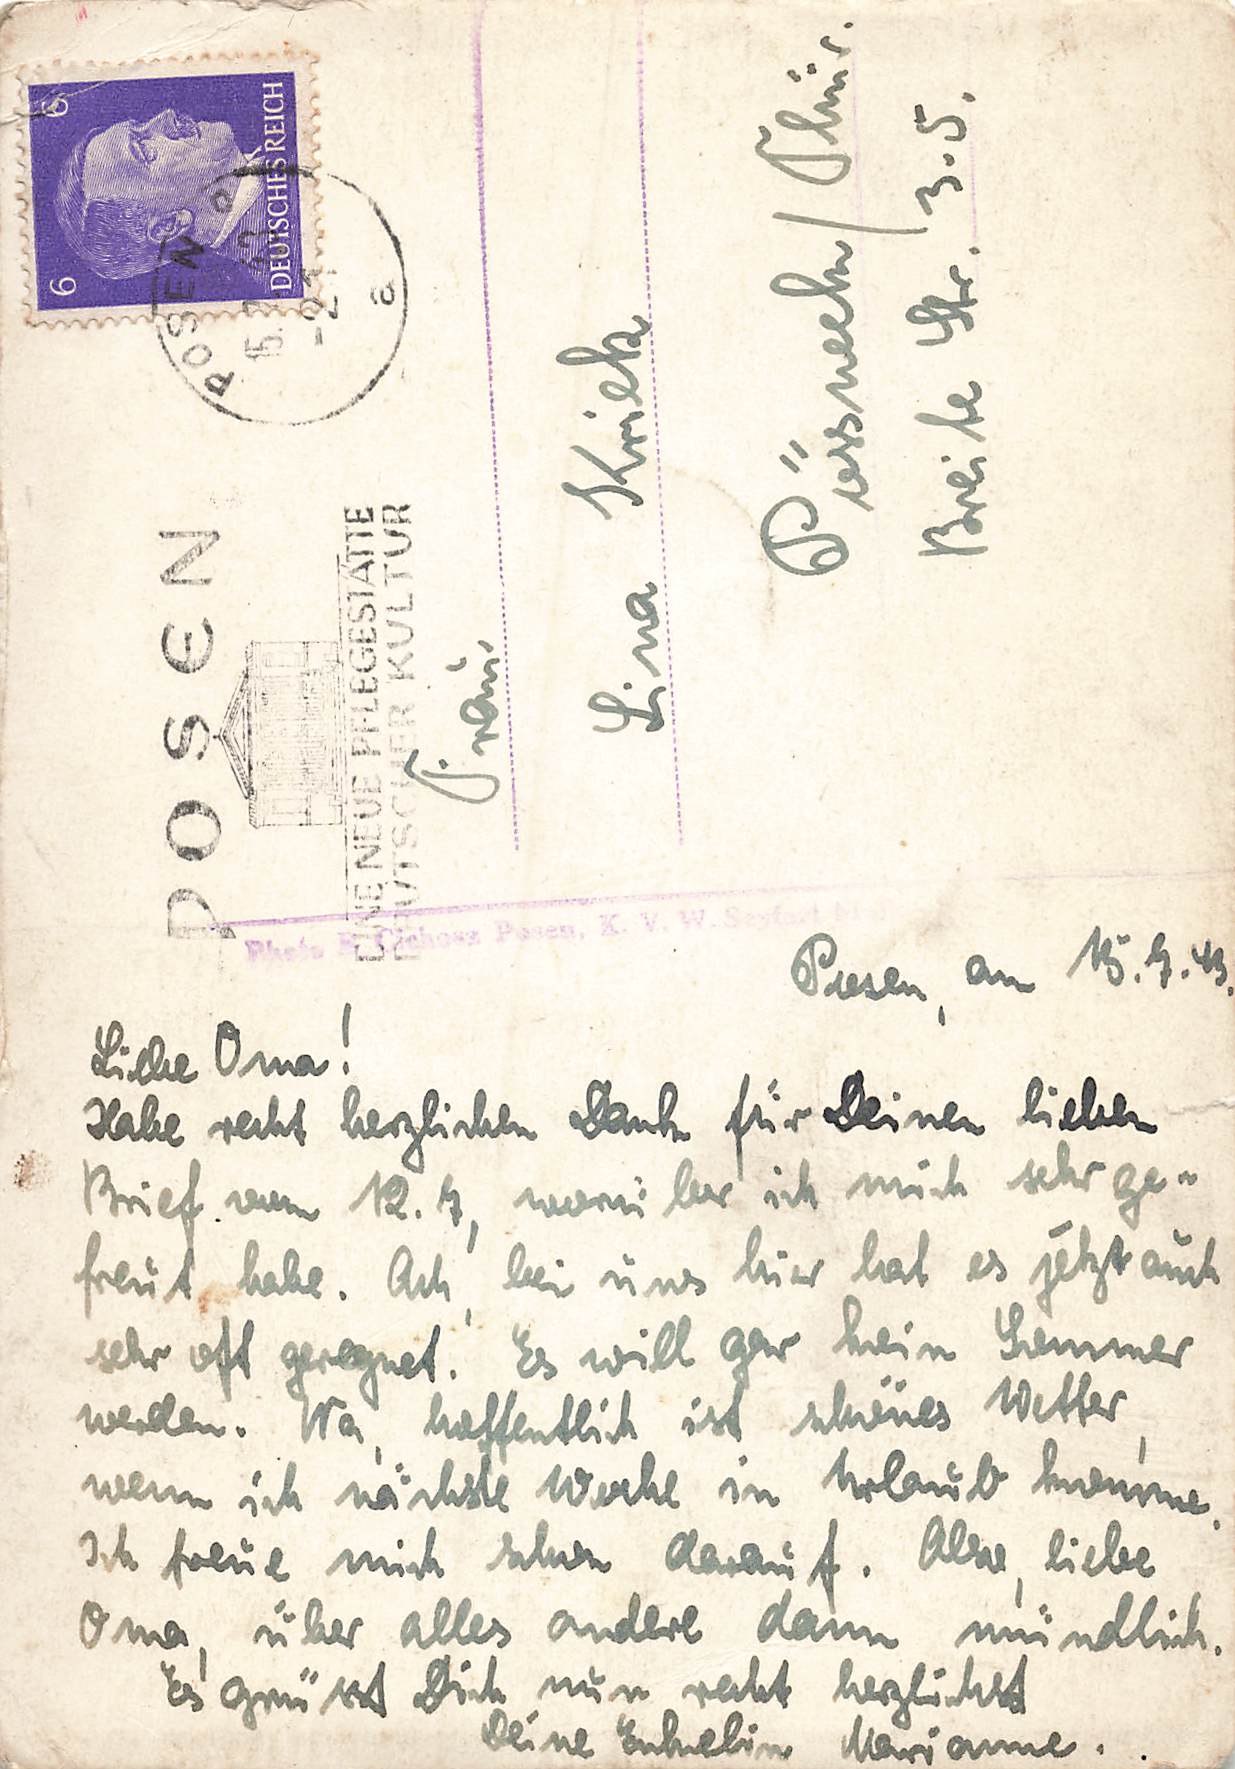 6
6
DEUTSCHES REICH
POSEN
15.7.43
a
POSEN
EINE NEUE PFLEGESTÄTTE
DEUTSCHER KULTUR
Frau
Lina
Pössneck / Thür.
Breite Str. 35.
Photo R. Posen, K. V. W.
Posen, am 15.7.43.
Liebe Oma!
Habe recht herzlichen Dank für Deinen lieben
Brief vom 12.7, worüber ich mich sehr ge-
freut habe. Ach, bei uns hier hat es jetzt auch
sehr oft geregnet. Es will gar kein Sommer
werden. Na, hoffentlich ist schönes Wetter,
wenn ich nächste Woche in Urlaub komme.
Ich freue mich schon darauf. Also, liebe
Oma, über alles andere dann mündlich.
Es grüsst Dich nun recht herzlichst
Deine Enkelin Marianne.